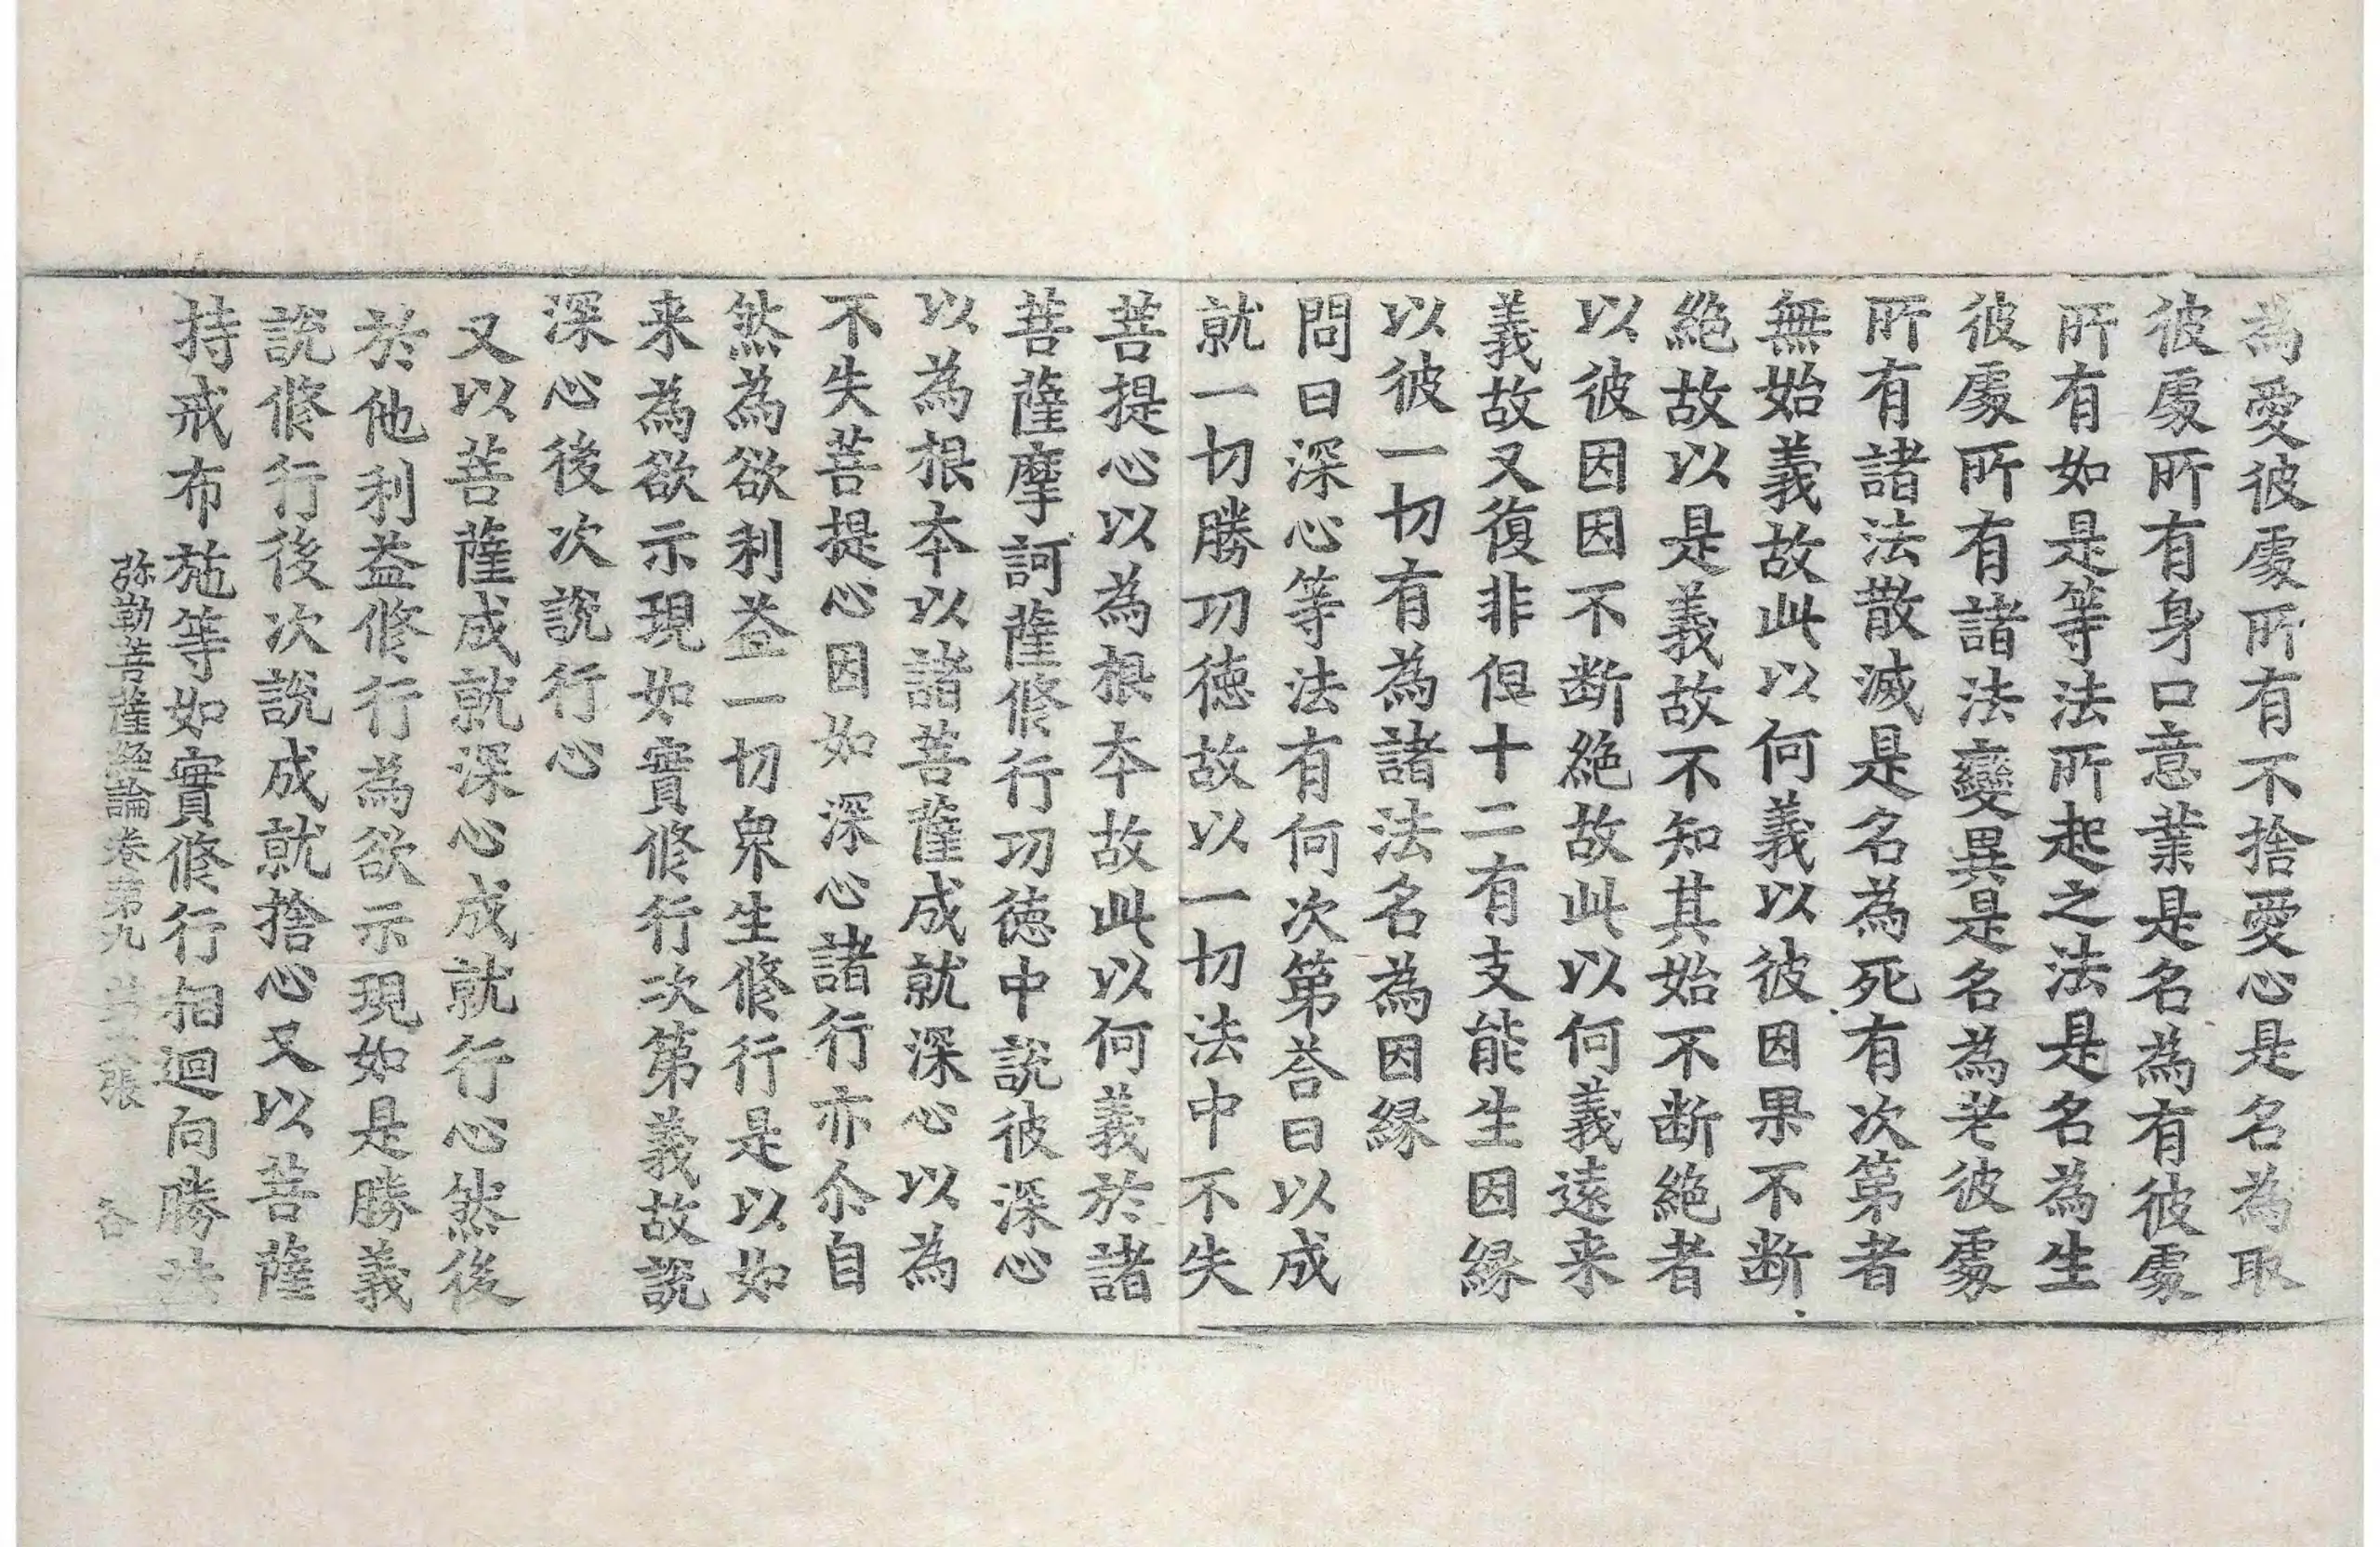 為愛彼䖏所有不捨愛心是名為取
彼䖏所有身口意業是名為有彼䖏
所有如是等法所起之法是名為生
彼䖏所有諸法變異是名為老彼䖏
所有諸法散滅是名為死有次第者
無始義故此以何義以彼因果不断
絶故以是義故不知其始不断絶者
以彼因因不断絶故此以何義遠来
義故又復非但十二有支能生因縁
以彼一切有為諸法名為因縁
問曰深心等法有何次第荅曰以成
就一切勝功徳故以一切法中不失
菩提心以為根本故此以何義於諸
菩薩摩訶薩修行功徳中說彼深心
以為根本以諸菩薩成就深心以為
不失菩提心因如深心諸行亦尒自
然為欲利益一切衆生修行是以如
来為欲示現如實修行次第義故說
深心後次說行心
又以菩薩成就深心成就行心然後
於他利益修行為欲示現如是勝義
說修行後次說成就捨心又以菩薩
持戒布施等如實修行相迴向勝法
弥勒菩薩經論卷第九 張 各